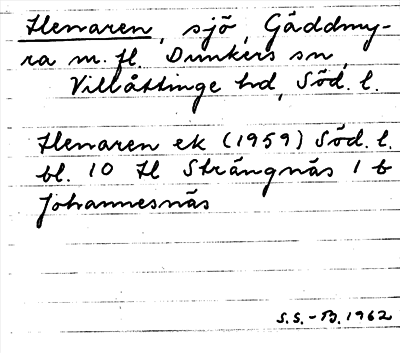 Henaren, sjö, Gäddmy-
ra m. fl. Dunkers sn,
Villåttinge hd, Söd. l.
Henaren ek (1959) Söd. l.
bl. 10 H Strängnäs 1 b
Johannesnäs
S.S.-B. 1962